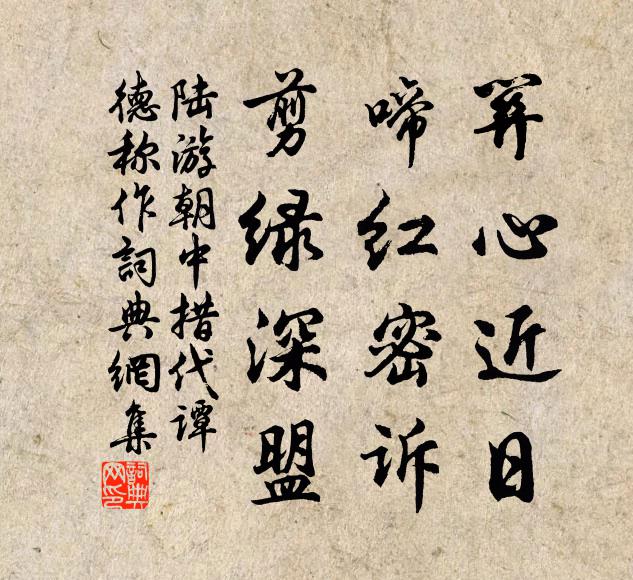 关心近日
啼红密诉
剪绿深盟
陆游朝中措代譚
德称作詞典網集
詞典
网印